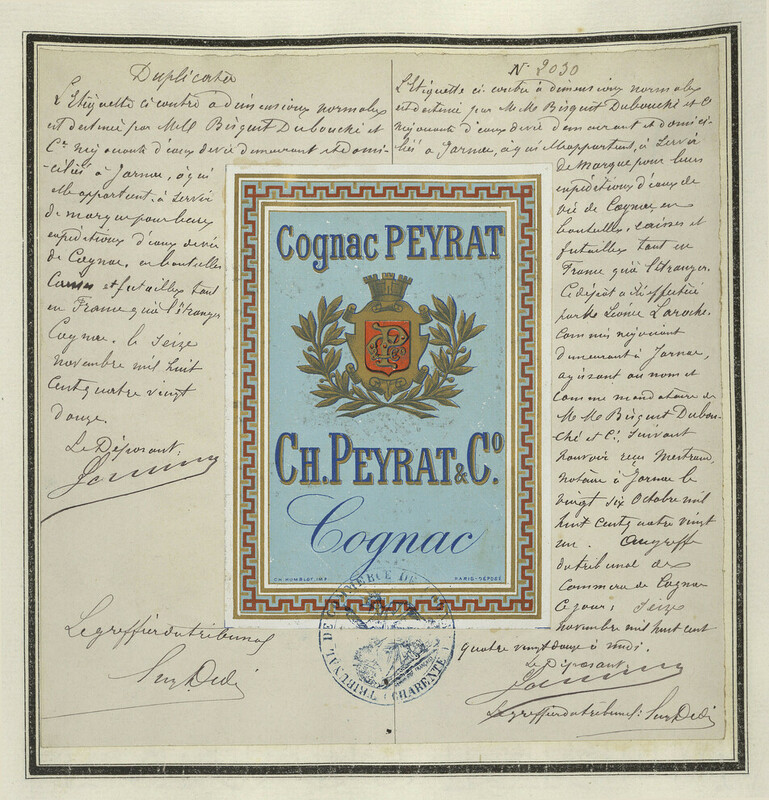 Duplicata
L'Etiquette ci contre à dimensions normales
est destinée par M.M. Bisquit Dubouché et
Cie négociants d'eaux de vie demeurant et domi-
ciliés à Jarnac, à qui
elle appartient, à servir
de marque pour leurs
expéditions d'eaux de vie
de Cognac, en bouteilles
caisses et futailles tant
en France qu'à l'étranger
Cognac, le seize
novembre mil huit
cent quatre vingt
douze.
Le Déposant,
Le greffier du tribunal
N° 2030
L'Etiquette ci contre à dimensions normales
est destinée par M.M. Bisquit Dubouché et Cie
négociants d'eaux de vie demeurant et domici-
liés à Jarnac, à qui elle appartient, à servir
de marque pour leurs
expéditions d'eaux de
vie de Cognac, en
bouteilles, caisses et
futailles tant en
France qu'à l'étranger.
Ce dépôt a été effectué
par Mr Léonce Laroche
Commis négociant
demeurant à Jarnac,
agissant au nom et
comme mandataire de
M.M. Bisquit Dubou-
ché et Cie, suivant
pouvoir reçu Mertraud
notaire à Jarnac le
vingt six Octobre mil
huit cent quatre vingt
un. Au greffe
du tribunal de
Commerce de Cognac
Ce jour, seize
novembre mil huit cent
quatre vingt douze à midi.
Le Déposant,
Le greffier du tribunal:
Cognac PEYRAT
CH. PEYRAT & Co.
Cognac
CH. HUMBLOT, IMP.
PARIS - DÉPOSÉ
TRIBUNAL DE COMMERCE DE
(CHARENTE)